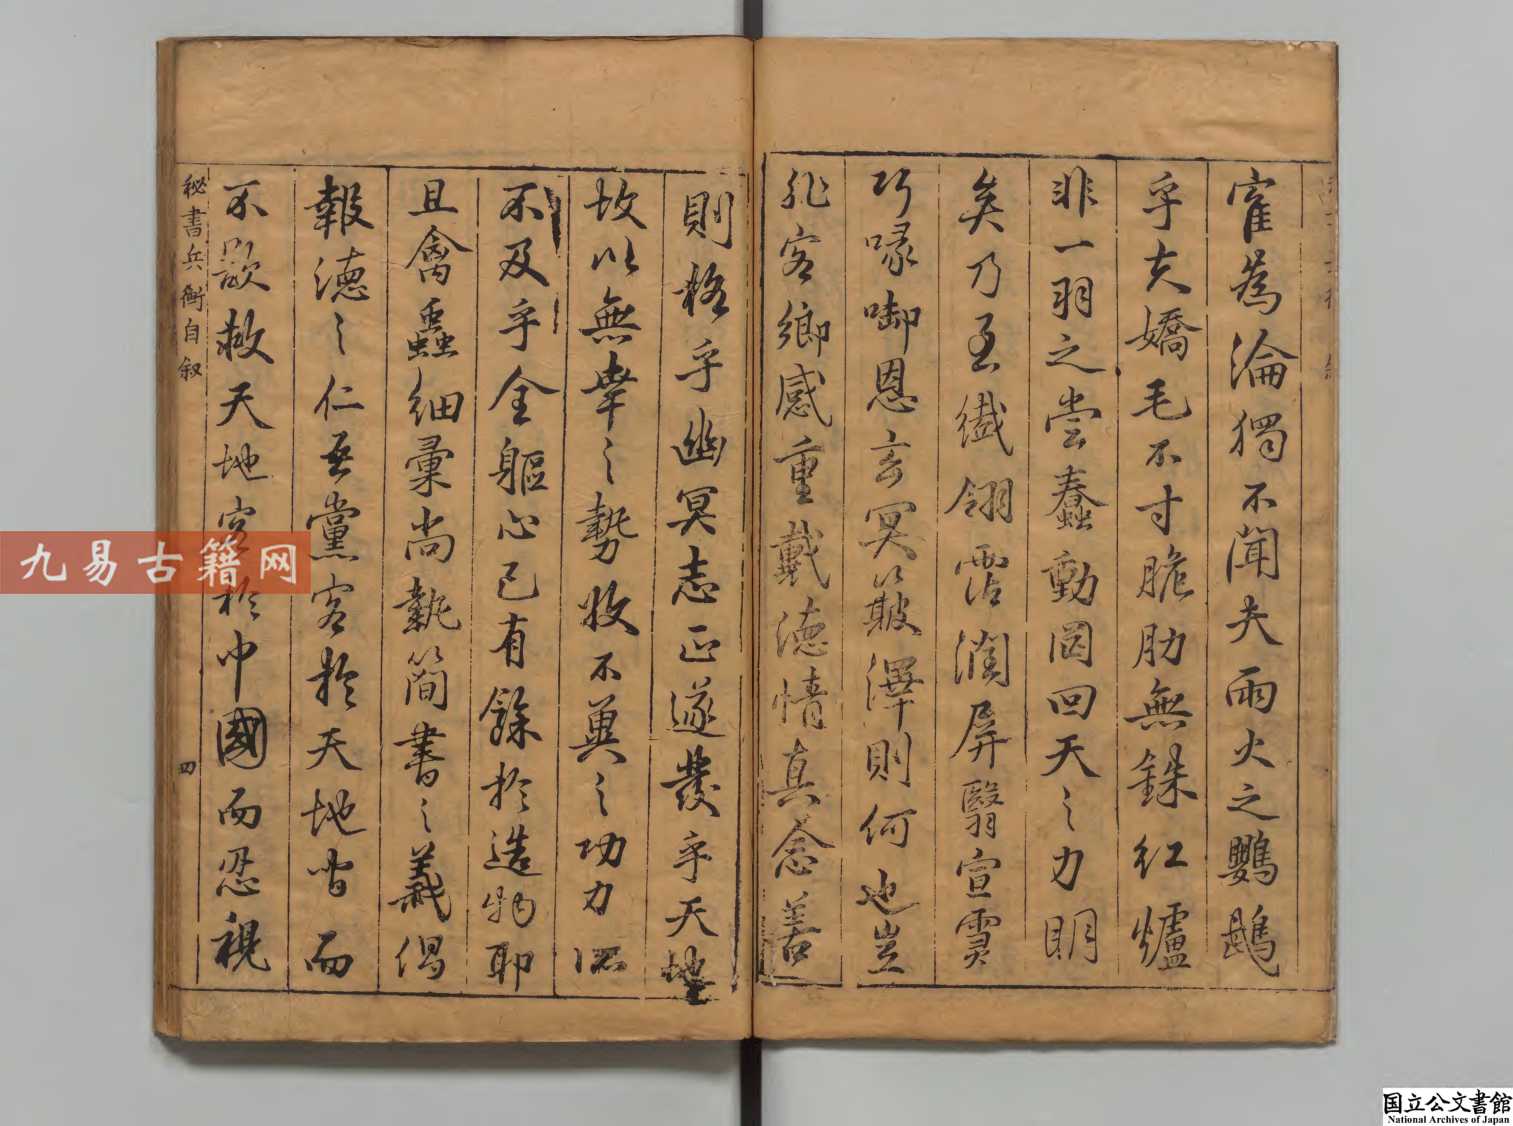 寉為淪獨不聞夫雨火之鸚鵡
乎夫嬌毛不寸脆肋無銖紅爐
非一羽之嘗蠢動罔回天之力明
矣乃至纎翎霑潤屏翳宣雲
巧喙啣恩玄冥簸澤則何也豈
非客鄉感重戴德情真念善
則格乎幽冥志正遂發乎天地
故以無幸之勢收不冀之功力
不及乎全軀心已有餘於造物耶
且禽蟲細彙尚執簡書之義偈
報德之仁吾黨客於天地皆而
不欲救天地客於中國而忍視
秘書兵衡自叙
四
九易古籍网
国立公文書館
National Archives of Japan